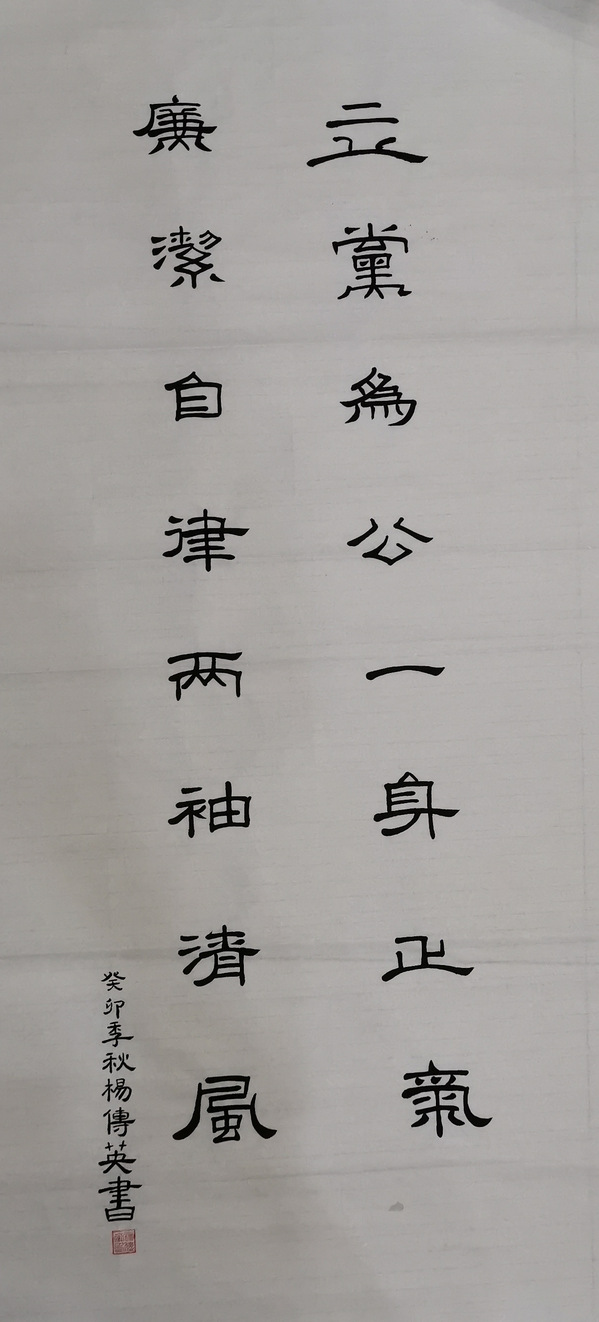 立黨為公一身正氣
廉潔自律两袖清風
癸卯季秋楊傳英書